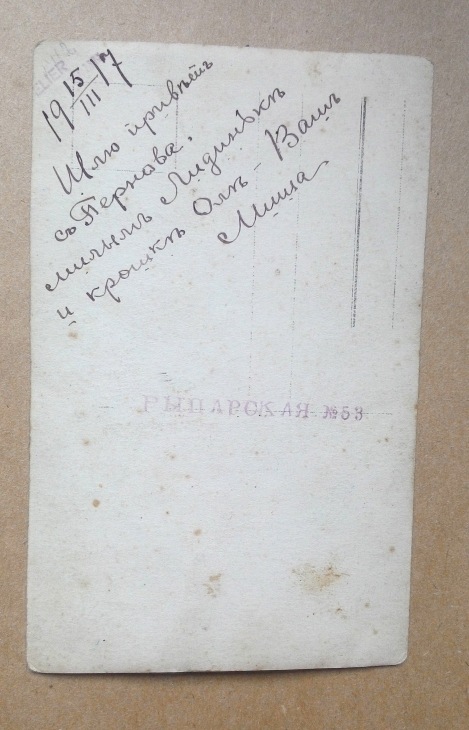 19 15/III 17
Шлю привѣтъ
съ Пернова.
милымъ Лидинькѣ
и крошкѣ Олѣ – Вашъ
Миша
РЫЦАРСКАЯ №53